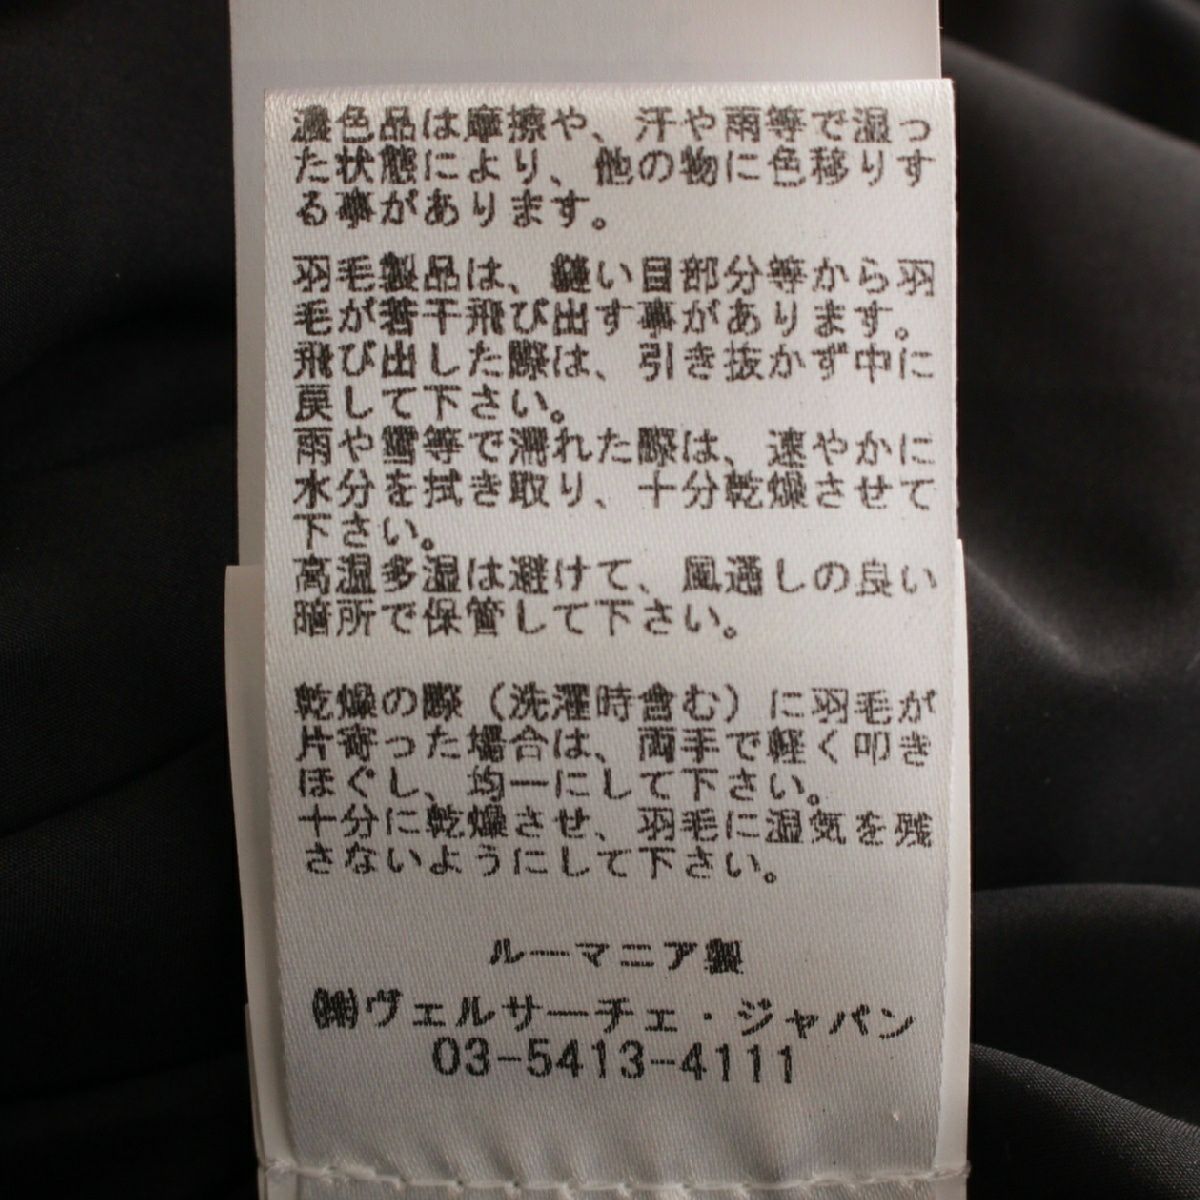 濃色品は摩擦や、汗や雨等で湿っ
た状態により、他の物に色移りす
る事があります。
羽毛製品は、縫い目部分等から羽
毛が若干飛び出す事があります。
飛び出した際は、引き抜かず中に
戻して下さい。
雨や雪等で濡れた際は、速やかに
水分を拭き取り、十分乾燥させて
下さい。
高温多湿は避けて、風通しの良い
暗所で保管して下さい。
乾燥の際(洗濯時含む)に羽毛が
片寄った場合は、両手で軽く叩き
ほぐし、均一にして下さい。
十分に乾燥させ、羽毛に湿気を残
さないようにして下さい。
ルーマニア製
㈱ヴェルサーチェ・ジャパン
03-5413-4111